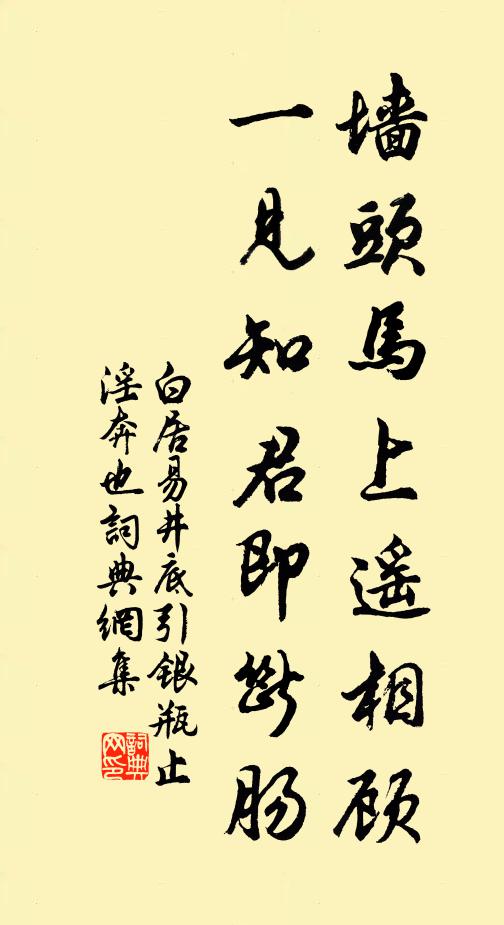 墙頭馬上遥相顾
一見知君即斷肠
白居易井底引銀瓶止
淫奔也詞典網集
詞典
网印